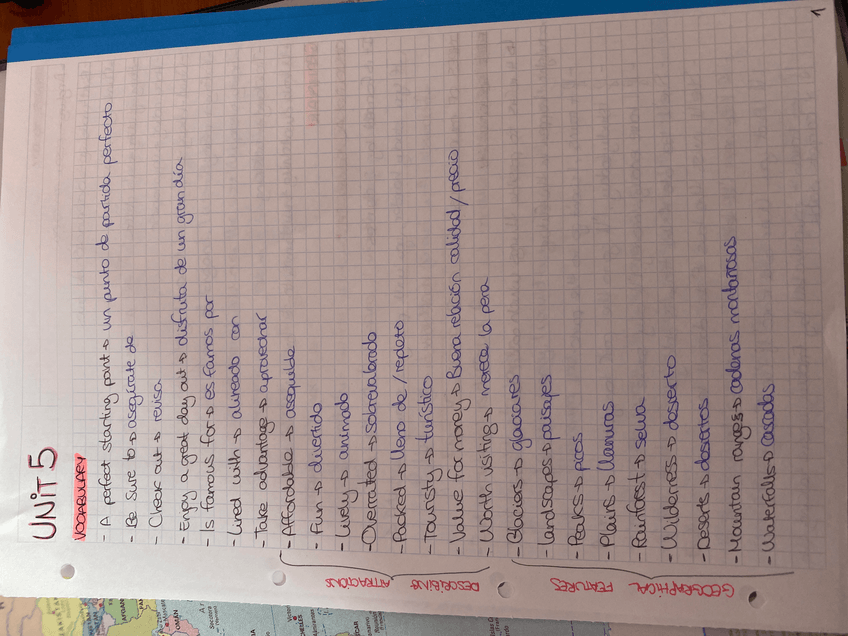 UNIT 5
VOCABULARY
- A perfect starting point → un punto de partida perfecto
- Be sure to → asegúrate de
- Check out → revisa
- Enjoy a great day out → disfruta de un gran día
- Is famous for → es famos por
- Lined with → alineado con
- Take advantage → aprovechar
- Affordable → asequible
- Fun → divertido
- Lively → animado
- Overrated → sobrevalorado
- Packed → lleno de / repleto
- Touristy → turístico
- Value for money → Buena relación calidad / precio
- Worth visiting → merece la pena
DESCRIBING ATTRACTIONS
- Glaciers → glaciares
- Landscapes → paisajes
- Peaks → picos
- Plains → llanuras
- Rainforest → selva
- Wilderness → desierto
- Deserts → desiertos
- Mountain ranges → cadenas montañosas
- Waterfalls → cascadas
GEOGRAPHICAL FEATURES
1
OMAN